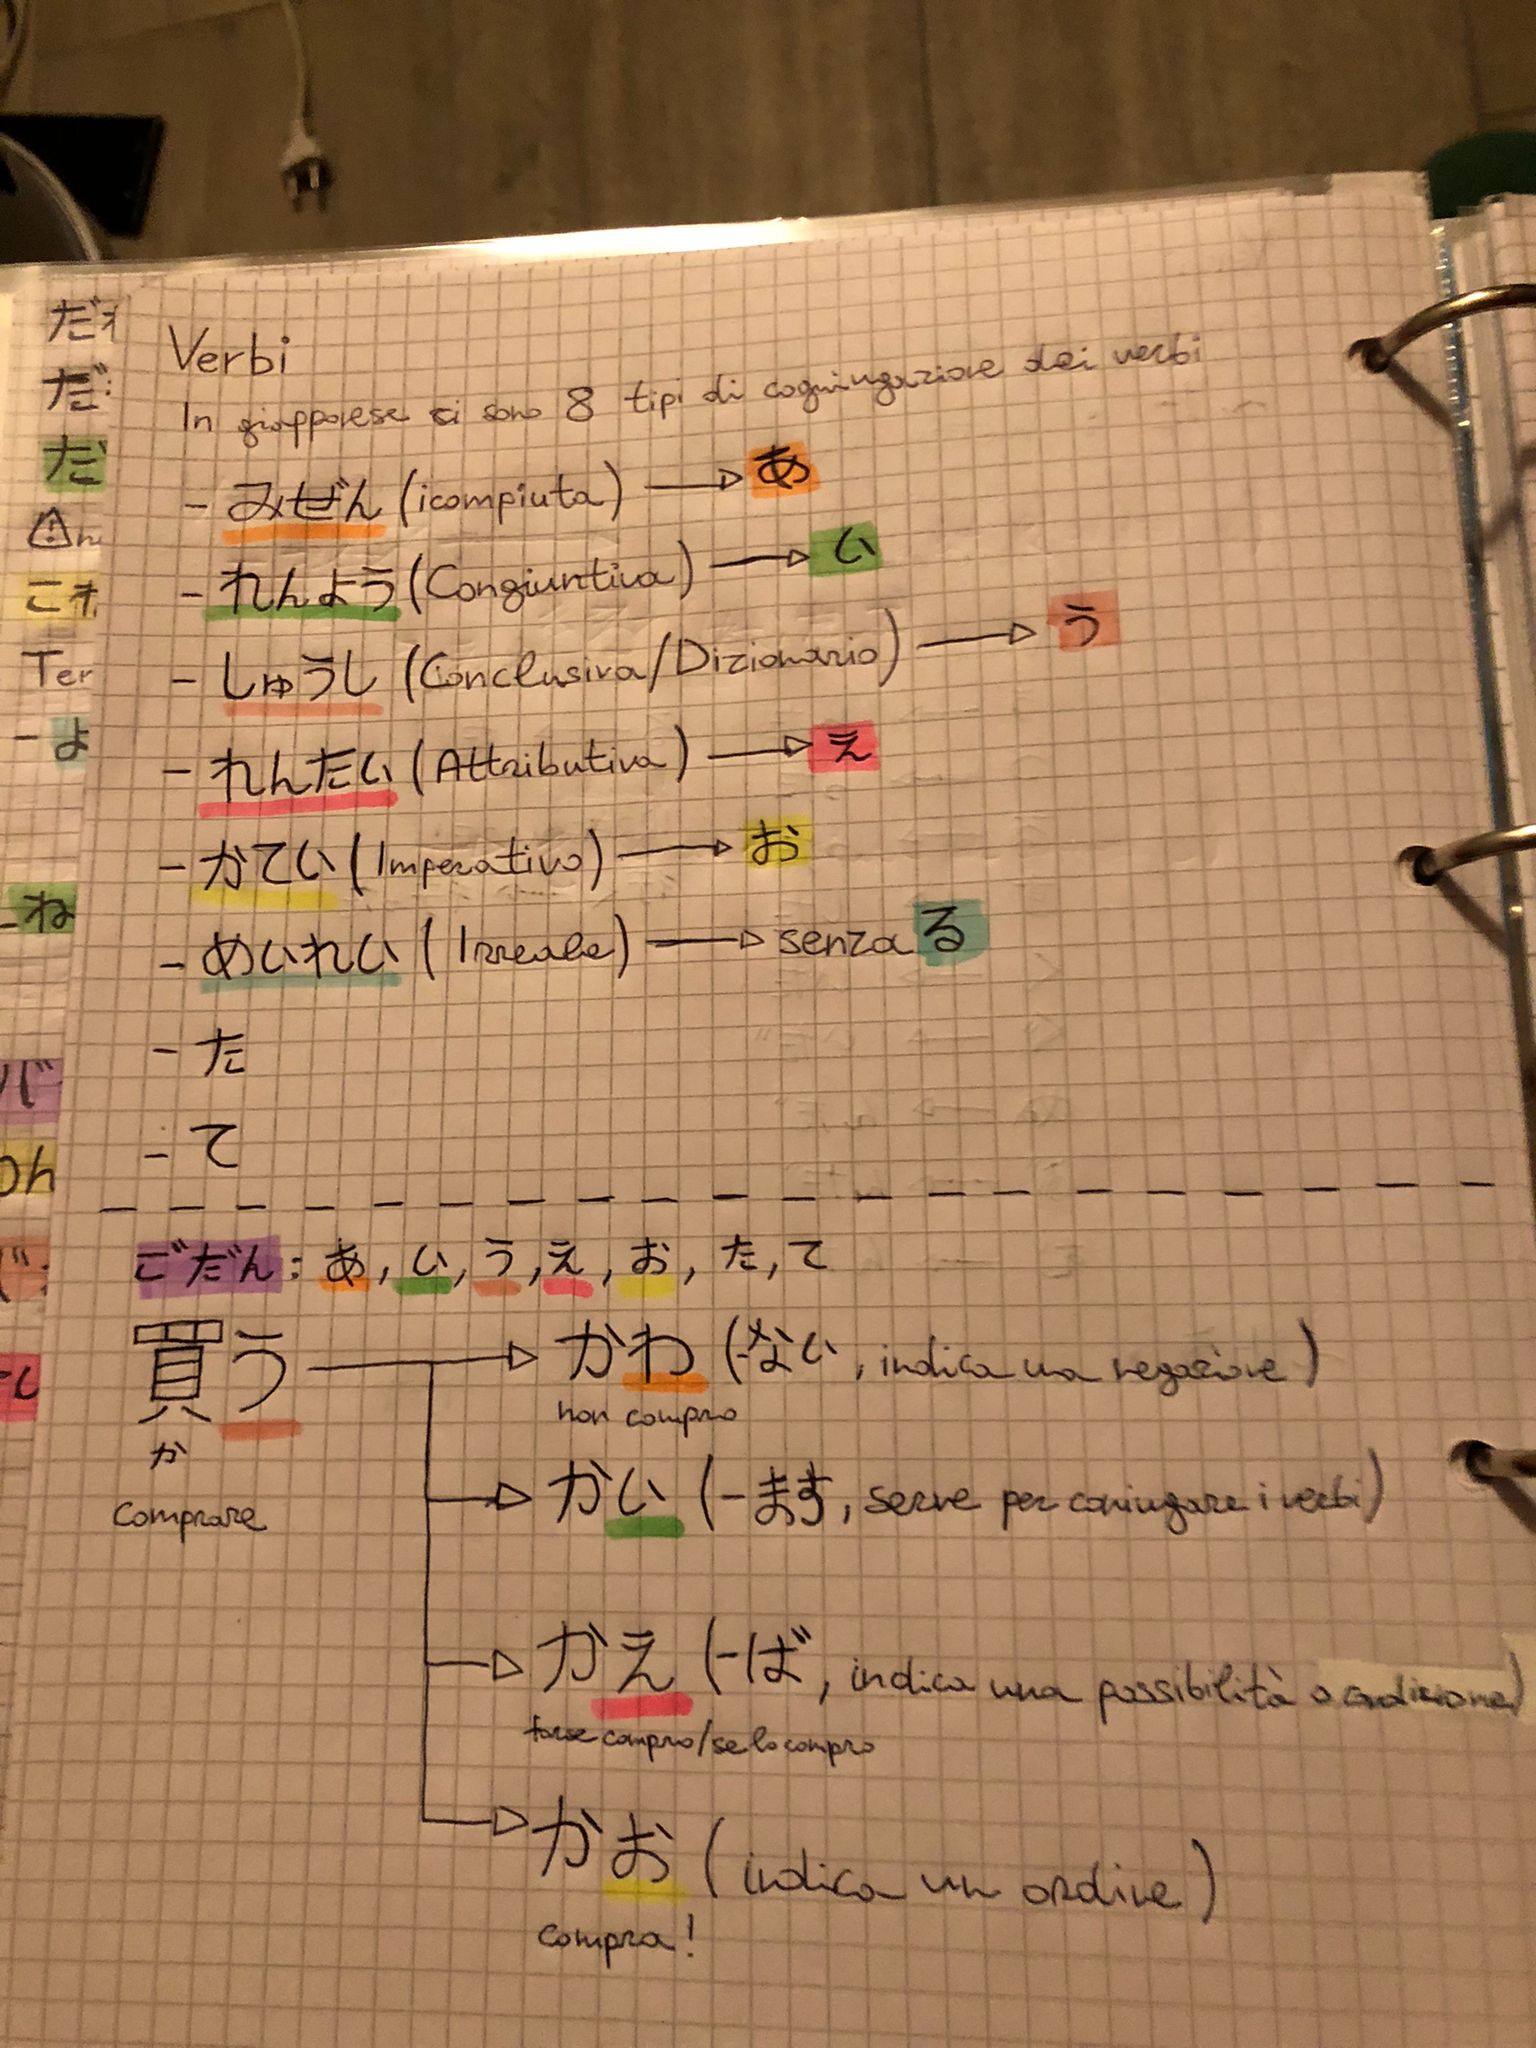 だ
だ
だ
こ
Ter
- よ
ね
バ
Verbi
In giapponese ci sono 8 tipi di cogniugazione dei verbi
- みぜん (icompiuta) → あ
- れんよう (Congiuntiva) → い
- しゅうし (Conclusiva/Dizionario) → う
- れんたい (Attributiva) → え
- かてい (Imperativo) → お
- めいれい (Irreale) → senza る
- た
- て
ごだん: あ, い, う, え, お, た, て
買う → かわ (-ない, indica una negazione)
か
non compro
comprare
→ かい (-ます, serve per coniugare i verbi)
→ かえ (-ば, indica una possibilità o condizione)
forse compro/se lo compro
→ かお (indica un ordine)
compra!